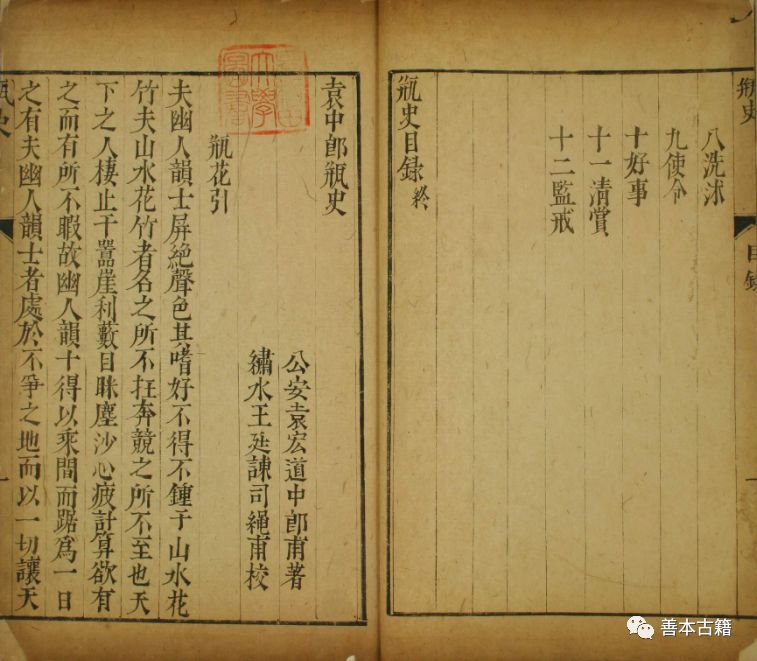 瓶史
目録
八洗沐
九使令
十好事
十一清賞
十二監戒
瓶史目録終
袁中郎瓶史
公安袁宏道中郎甫著
繡水王廷諫司繩甫校
瓶花引
夫幽人韻士屏絶聲色其嗜好不得不鍾于山水花
竹夫山水花竹者名之所不在奔競之所不至也天
下之人棲止于囂崖利藪目眯塵沙心疲計算欲有
之而有所不暇故幽人韻士得以乘間而踞爲一日
之有夫幽人韻士者處於不爭之地而以一切讓天
瓶史
一
善本古籍